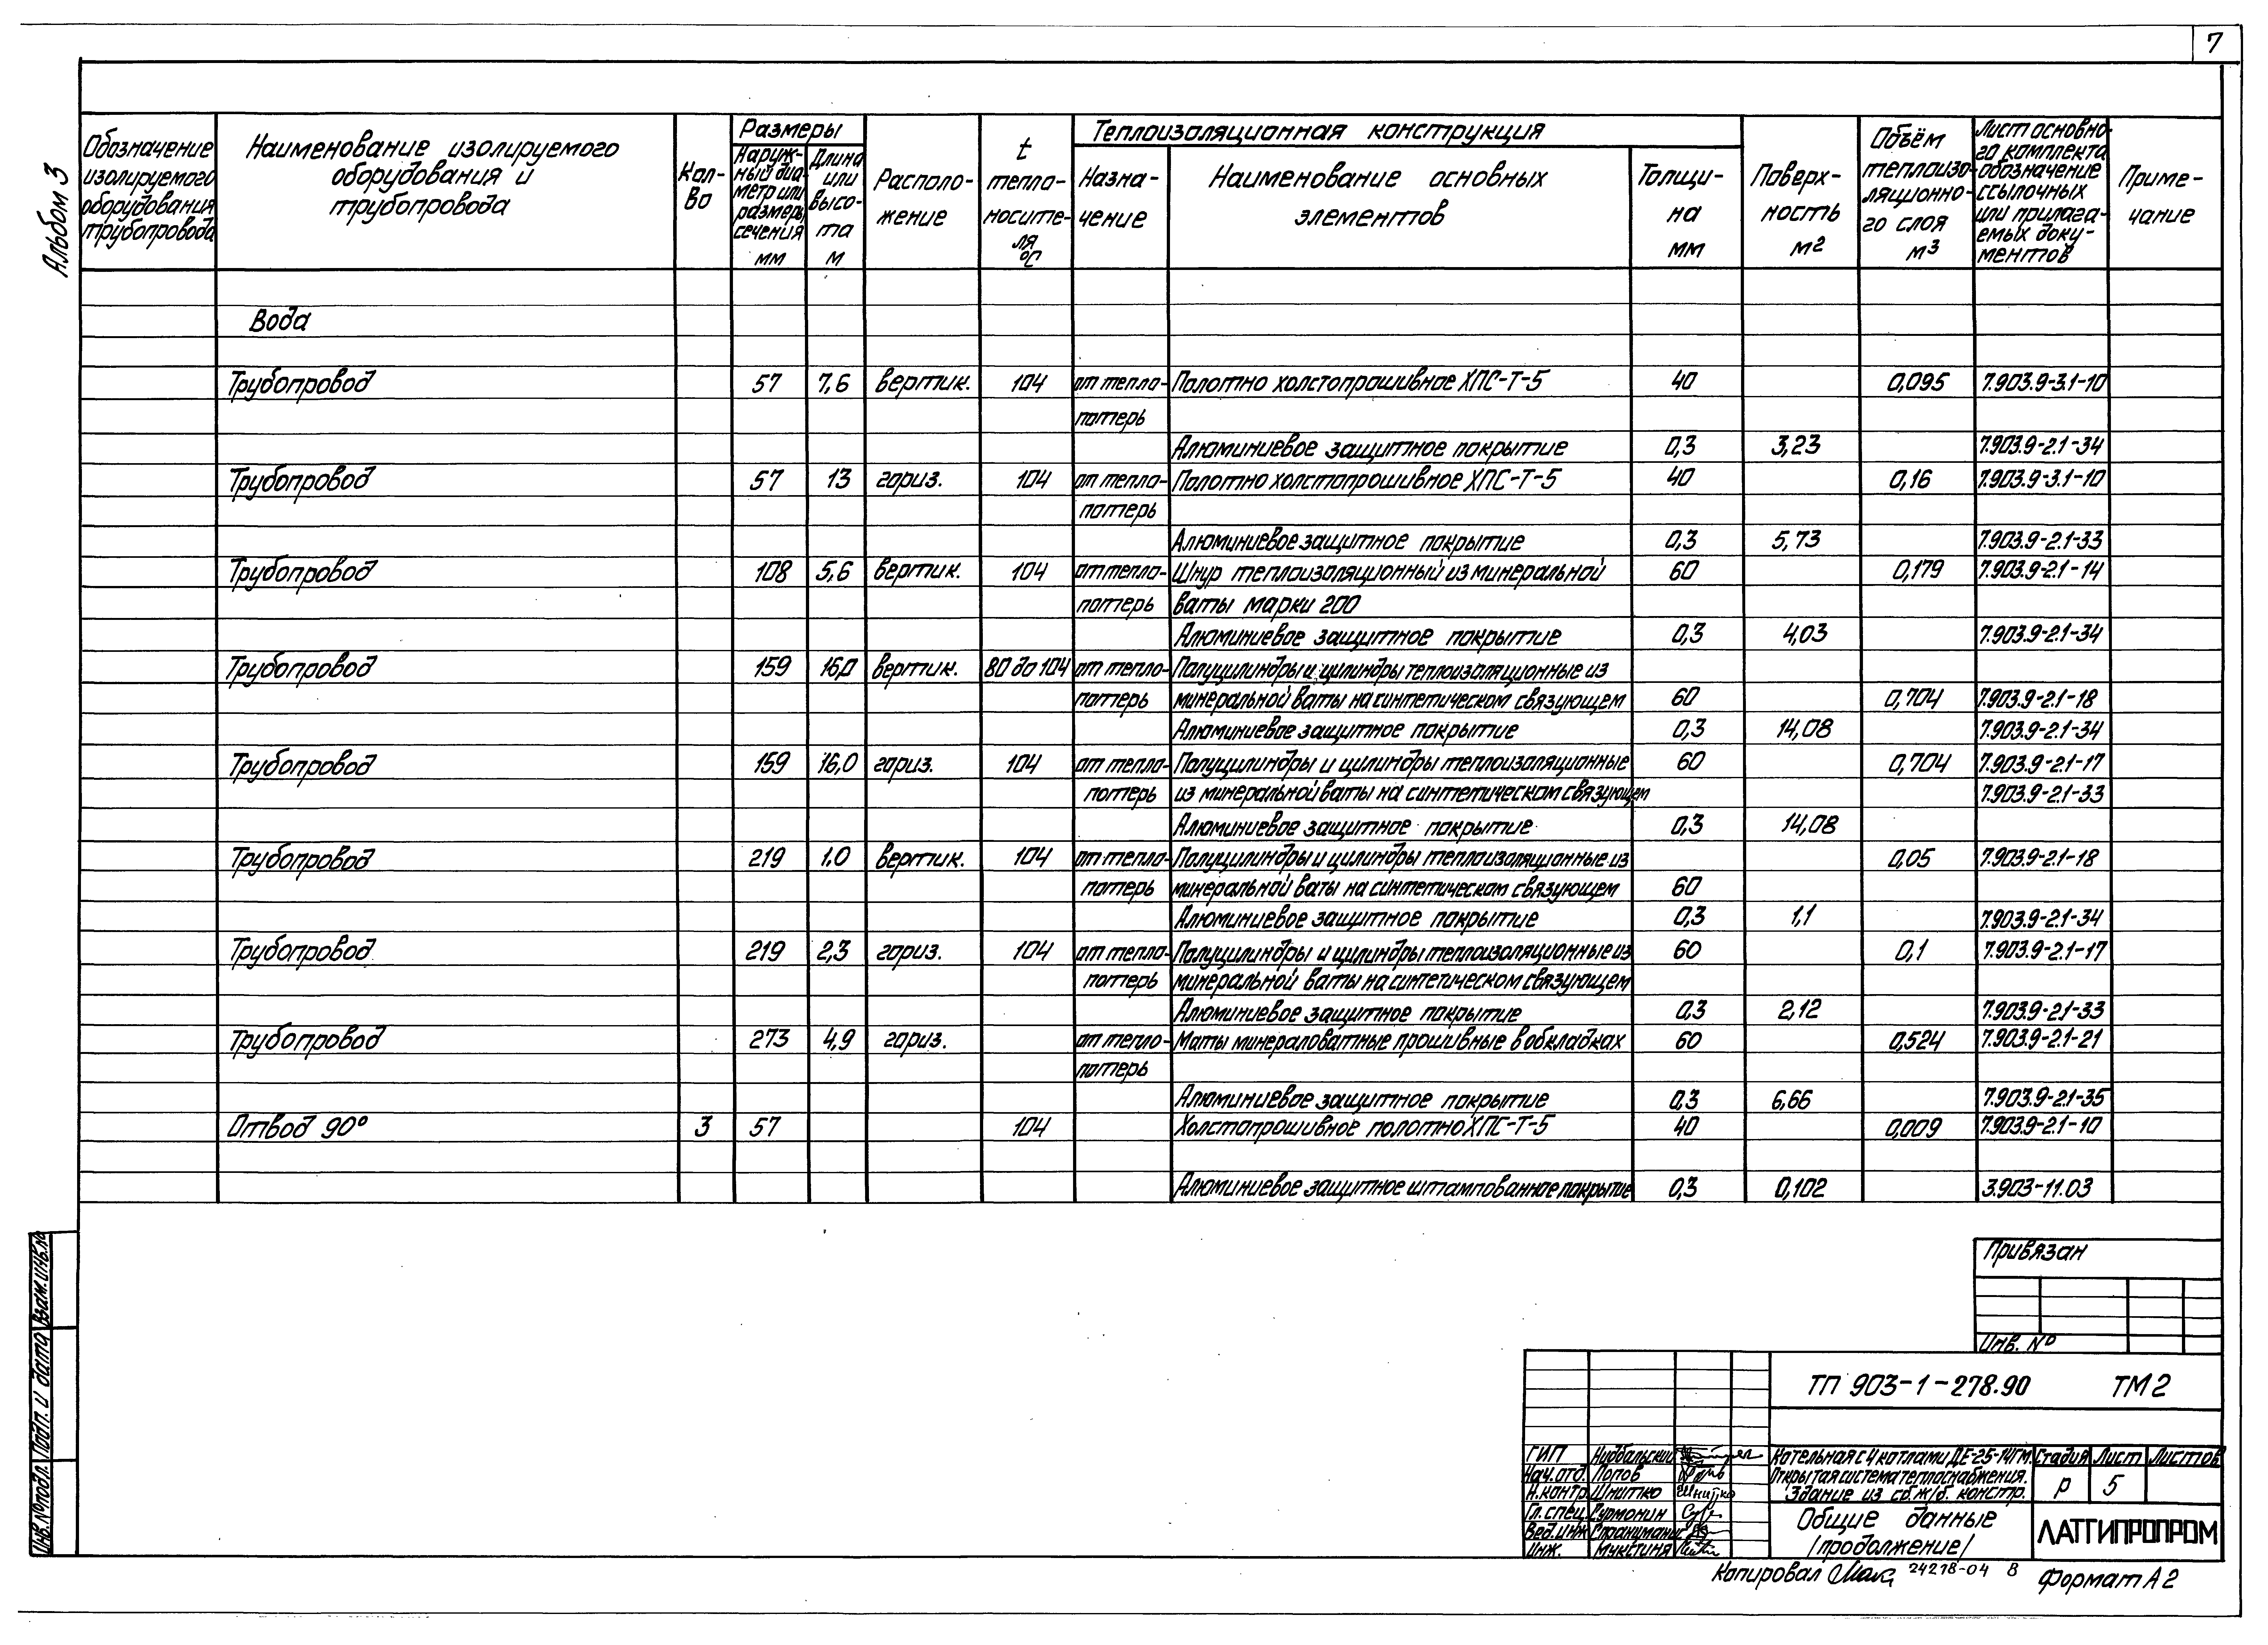 7
Альбом 3
Обозначение изолируемого оборудования трубопровода
Наименование изолируемого оборудования и трубопровода
Кол-во
Размеры
Наруж-ный диа-метр или размеры сечения мм
Длина или высо-та м
Располо-жение
t тепло-носите-ля °С
Теплоизоляционная конструкция
Назна-чение
Наименование основных элементов
Толщи-на мм
Поверх-ность м²
Объём теплоизо-ляционно-го слоя м³
Лист основно-го комплекта, обозначение ссылочных или прилага-емых доку-ментов
Приме-чание
Вода
Трубопровод 57 7,6 вертик. 104 от тепло- Полотно холстопрошивное ХПС-Т-5 40 0,095 7.903.9-3.1-10
потерь
Алюминиевое защитное покрытие 0,3 3,23 7.903.9-2.1-34
Трубопровод 57 13 гориз. 104 от тепло- Полотно холстопрошивное ХПС-Т-5 40 0,16 7.903.9-3.1-10
потерь
Алюминиевое защитное покрытие 0,3 5,73 7.903.9-2.1-33
Трубопровод 108 5,6 вертик. 104 от тепло- Шнур теплоизоляционный из минеральной 60 0,179 7.903.9-2.1-14
потерь ваты марки 200
Алюминиевое защитное покрытие 0,3 4,03 7.903.9-2.1-34
Трубопровод 159 16,0 вертик. 80 до 104 от тепло- Полуцилиндры и цилиндры теплоизоляционные из
потерь минеральной ваты на синтетическом связующем 60 0,704 7.903.9-2.1-18
Алюминиевое защитное покрытие 0,3 14,08 7.903.9-2.1-34
Трубопровод 159 16,0 гориз. 104 от тепло- Полуцилиндры и цилиндры теплоизоляционные 60 0,704 7.903.9-2.1-17
потерь из минеральной ваты на синтетическом связующем 7.903.9-2.1-33
Алюминиевое защитное покрытие 0,3 14,08
Трубопровод 219 1.0 вертик. 104 от тепло- Полуцилиндры и цилиндры теплоизоляционные из 0,05 7.903.9-2.1-18
потерь минеральной ваты на синтетическом связующем 60
Алюминиевое защитное покрытие 0,3 1,1 7.903.9-2.1-34
Трубопровод 219 2,3 гориз. 104 от тепло- Полуцилиндры и цилиндры теплоизоляционные из 60 0,1 7.903.9-2.1-17
потерь минеральной ваты на синтетическом связующем
Алюминиевое защитное покрытие 0,3 2,12 7.903.9-2.1-33
Трубопровод 273 4,9 гориз. от тепло- Маты минераловатные прошивные в обкладках 60 0,524 7.903.9-2.1-21
потерь
Алюминиевое защитное покрытие 0,3 6,66 7.903.9-2.1-35
Отвод 90° 3 57 104 Холстопрошивное полотно ХПС-Т-5 40 0,009 7.903.9-2.1-10
Алюминиевое защитное штампованное покрытие 0,3 0,102 3.903-11.03
Взам. инв. №
Подп. и дата
Инв. № подл.
Привязан
Инв. №
ТП 903-1-278.90 ТМ2
ГИП Нидбальский
Нач. отд. Попов
Н. контр. Шнитко
Гл. спец. Сурмонин
Вед. инж.
Инж. Мукстиня
Котельная с 4 котлами ДЕ-25-14ГМ.
Открытая система теплоснабжения.
Здание из сб. ж/б. констр.
Стадия Лист Листов
Р 5
Общие данные
/продолжение/
ЛАТГИПРОПРОМ
Копировал 24218-04 8 Формат А2